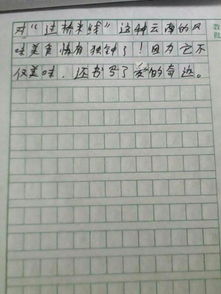 对“过桥米线”这种云南的风
味美食情有独钟了！因为它不
仅美味，还书写了爱的奇迹。